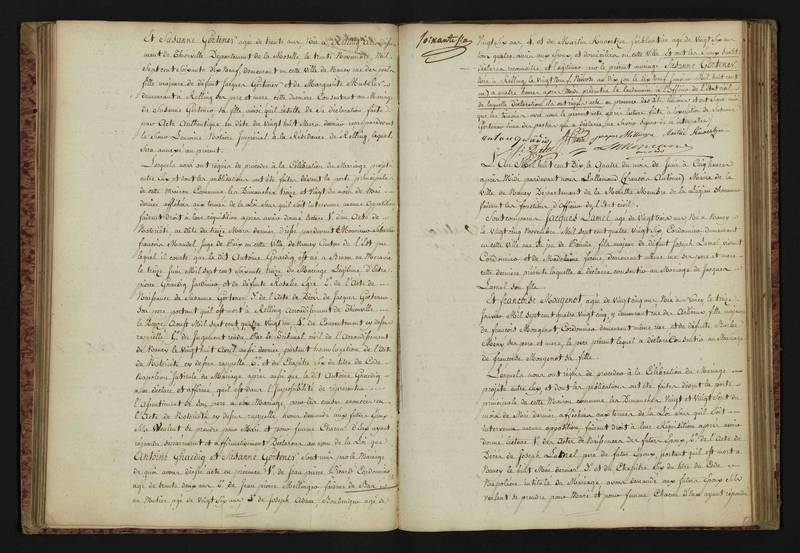 Et Susanne Görtener agée de trente ans, Née à Relling arrondisse
ment de Thionville Département de la Moselle, le trente Novembre Mil
Sept cent soixante dix Neuf, demeurant en cette ville de Nancy rue
fille majeure de défunt Jacques Görtener et de Marguerite
demeurant à Relling ses père et mere, cette derniere Consentant au Mariage
de Susanne Görtener sa fille ainsi qu'il résulte de sa déclaration faite
par Acte Authentique en date du Vingt huit Mars dernier
Notaire Impérial à la Résidence de Relling, lequel
sera annexé au présent.
Lesquels nous ont requis de procéder à la Célébration du Mariage projetté
entre Eux et dont les publications ont été faites devant la porte principale
de cette Maison Commune les Dimanches treize et Vingt du mois de Mai
dernier, affichées aux termes de la Loi sans qu'il soit intervenu aucune opposition
faisant droit à leur réquisition après avoir donné lecture 1.° d'un Acte de
Notoriété, en date du treize Mars dernier, dressé pardevant Monsieur
françois Mandel, Juge de Paix en cette ville, de Nancy Canton de l'Est, par
lequel il conste que le dit Antoine Gnaidig est né à Brunn en Moravie
le treize Juin Mil sept cent soixante treize du Mariage Légitime d'Entre
pierre Gnaidig Jardinier et de défunte Rosalie 2.° de l'Acte de
Naissance de Susanne Görtener 3.° de l'Acte de Décès de Jacques Görtener
son père portant qu'il est mort à Relling Arrondissement de Thionville
le Douze Aoust Mil Sept cent quatre Vingt 4.° du Consentement cy dessus
rappellé 5.° du Jugement rendu par le Tribunal civil de l'Arrondissement
de Nancy le Vingt huit Avril aussi dernier, portant homologation de l'Acte
de Notoriété cy dessus rappellé 6.° et du Chapitre Six du titre du Code
Napoléon intitulé du Mariage après aussi que le dit Antoine Gnaidig
a déclaré et affirmé, qu'il est dans l'Impossibilité de représenter
l'assentiment de son père à son Mariage, pour les causes énoncées en
l'Acte de Notoriété cy dessus rappellé avons demandé aux futurs Epoux
S'ils Veulent se prendre pour Mari et pour femme Chacun d'Eux ayant
répondu séparément et affirmativement Déclarons au nom de la Loi que
Antoine Gnaidig et Susanne Görtener Sont unis par le Mariage
de quoi avons dressé acte en présence 1.° de Jean pierre Cordonnier
agé de trente deux ans 2.° de Jean pierre
au Métier, agé de Vingt Six ans 3.° de Joseph Adam Boulanger agé de
soixante six
Vingt Six ans 4. et de Martin Knoertzer ferblantier agé de Vingt Six ans
tous quatre amis aux Epoux et domiciliés en cette ville, Et ont les Epoux
déclaré reconnaître et légitimer par le présent mariage Susanne Görtener
Née à Relling le Vingt Neuf Nivôse an Dix (ou le Dix neuf Janvier Mil huit cent
deux) à quatre heures après Midi présentée le lendemain à l'Officier de l'Etat civil
de laquelle Déclaration a été dressé acte en présence des dits témoins et ont signé avec
nous les témoins avec nous le présent acte après lecture faite à l'exception de Susanne
Görtener l'une des parties qui a déclaré ne Savoir Signer de ce interpellée
Martin Knoertzer
L'An Mil huit Cent Dix, le Quatre du mois de Juin à Cinq heures
après Midi pardevant nous Lallemand (françois Antoine) Maire de la
Ville de Nancy Département de la Meurthe Membre de la Légion d'honneur
faisant les fonctions d'Officier de l'Etat civil.
Sont comparus Jacques Lamel agé de Vingt trois ans Né à Nancy
le Vingt cinq Novembre Mil Sept cent quatre Vingt Six, Cordonnier demeurant
en cette ville rue St. Jean, fils majeur de défunt Joseph Lamel, vivant
Cordonnier et de Madelaine demeurant même rue ses père et mere
cette derniere présente laquelle a déclaré consentir au Mariage de Jacques
Lamel son fils.
Et Françoise Mougenot agée de Vingt cinq ans Née à le treize
Janvier Mil Sept cent quatre Vingt cinq, y demeurant rue des fille majeure
de françois Mougenot Cordonnier demeurant même rue, et de défunte Barbe
ses pere et mere, le père présent lequel a déclaré Consentir au Mariage
de françoise Mougenot sa fille.
Lesquels nous ont requis de procéder à la Célébration du Mariage
projetté entre Eux et dont les publications ont été faites devant la porte
principale de cette Maison commune les Dimanches Vingt et Vingt Sept du
mois de Mai dernier, affichées aux termes de la Loi Sans qu'il soit
intervenu aucune opposition, faisant droit à leur Réquisition après avoir
donné lecture 1.° des Actes de Naissance des futurs Epoux 2.° de l'Acte de
Décès de Joseph Lamel père du futur Epoux portant qu'il est mort à
Nancy le huit Mai dernier 3.° et du Chapitre Six du titre du Code
Napoléon intitulé du Mariage avons demandé aux futurs Epoux S'ils
veulent se prendre, pour Mari et pour femme, Chacun d'Eux ayant répondu